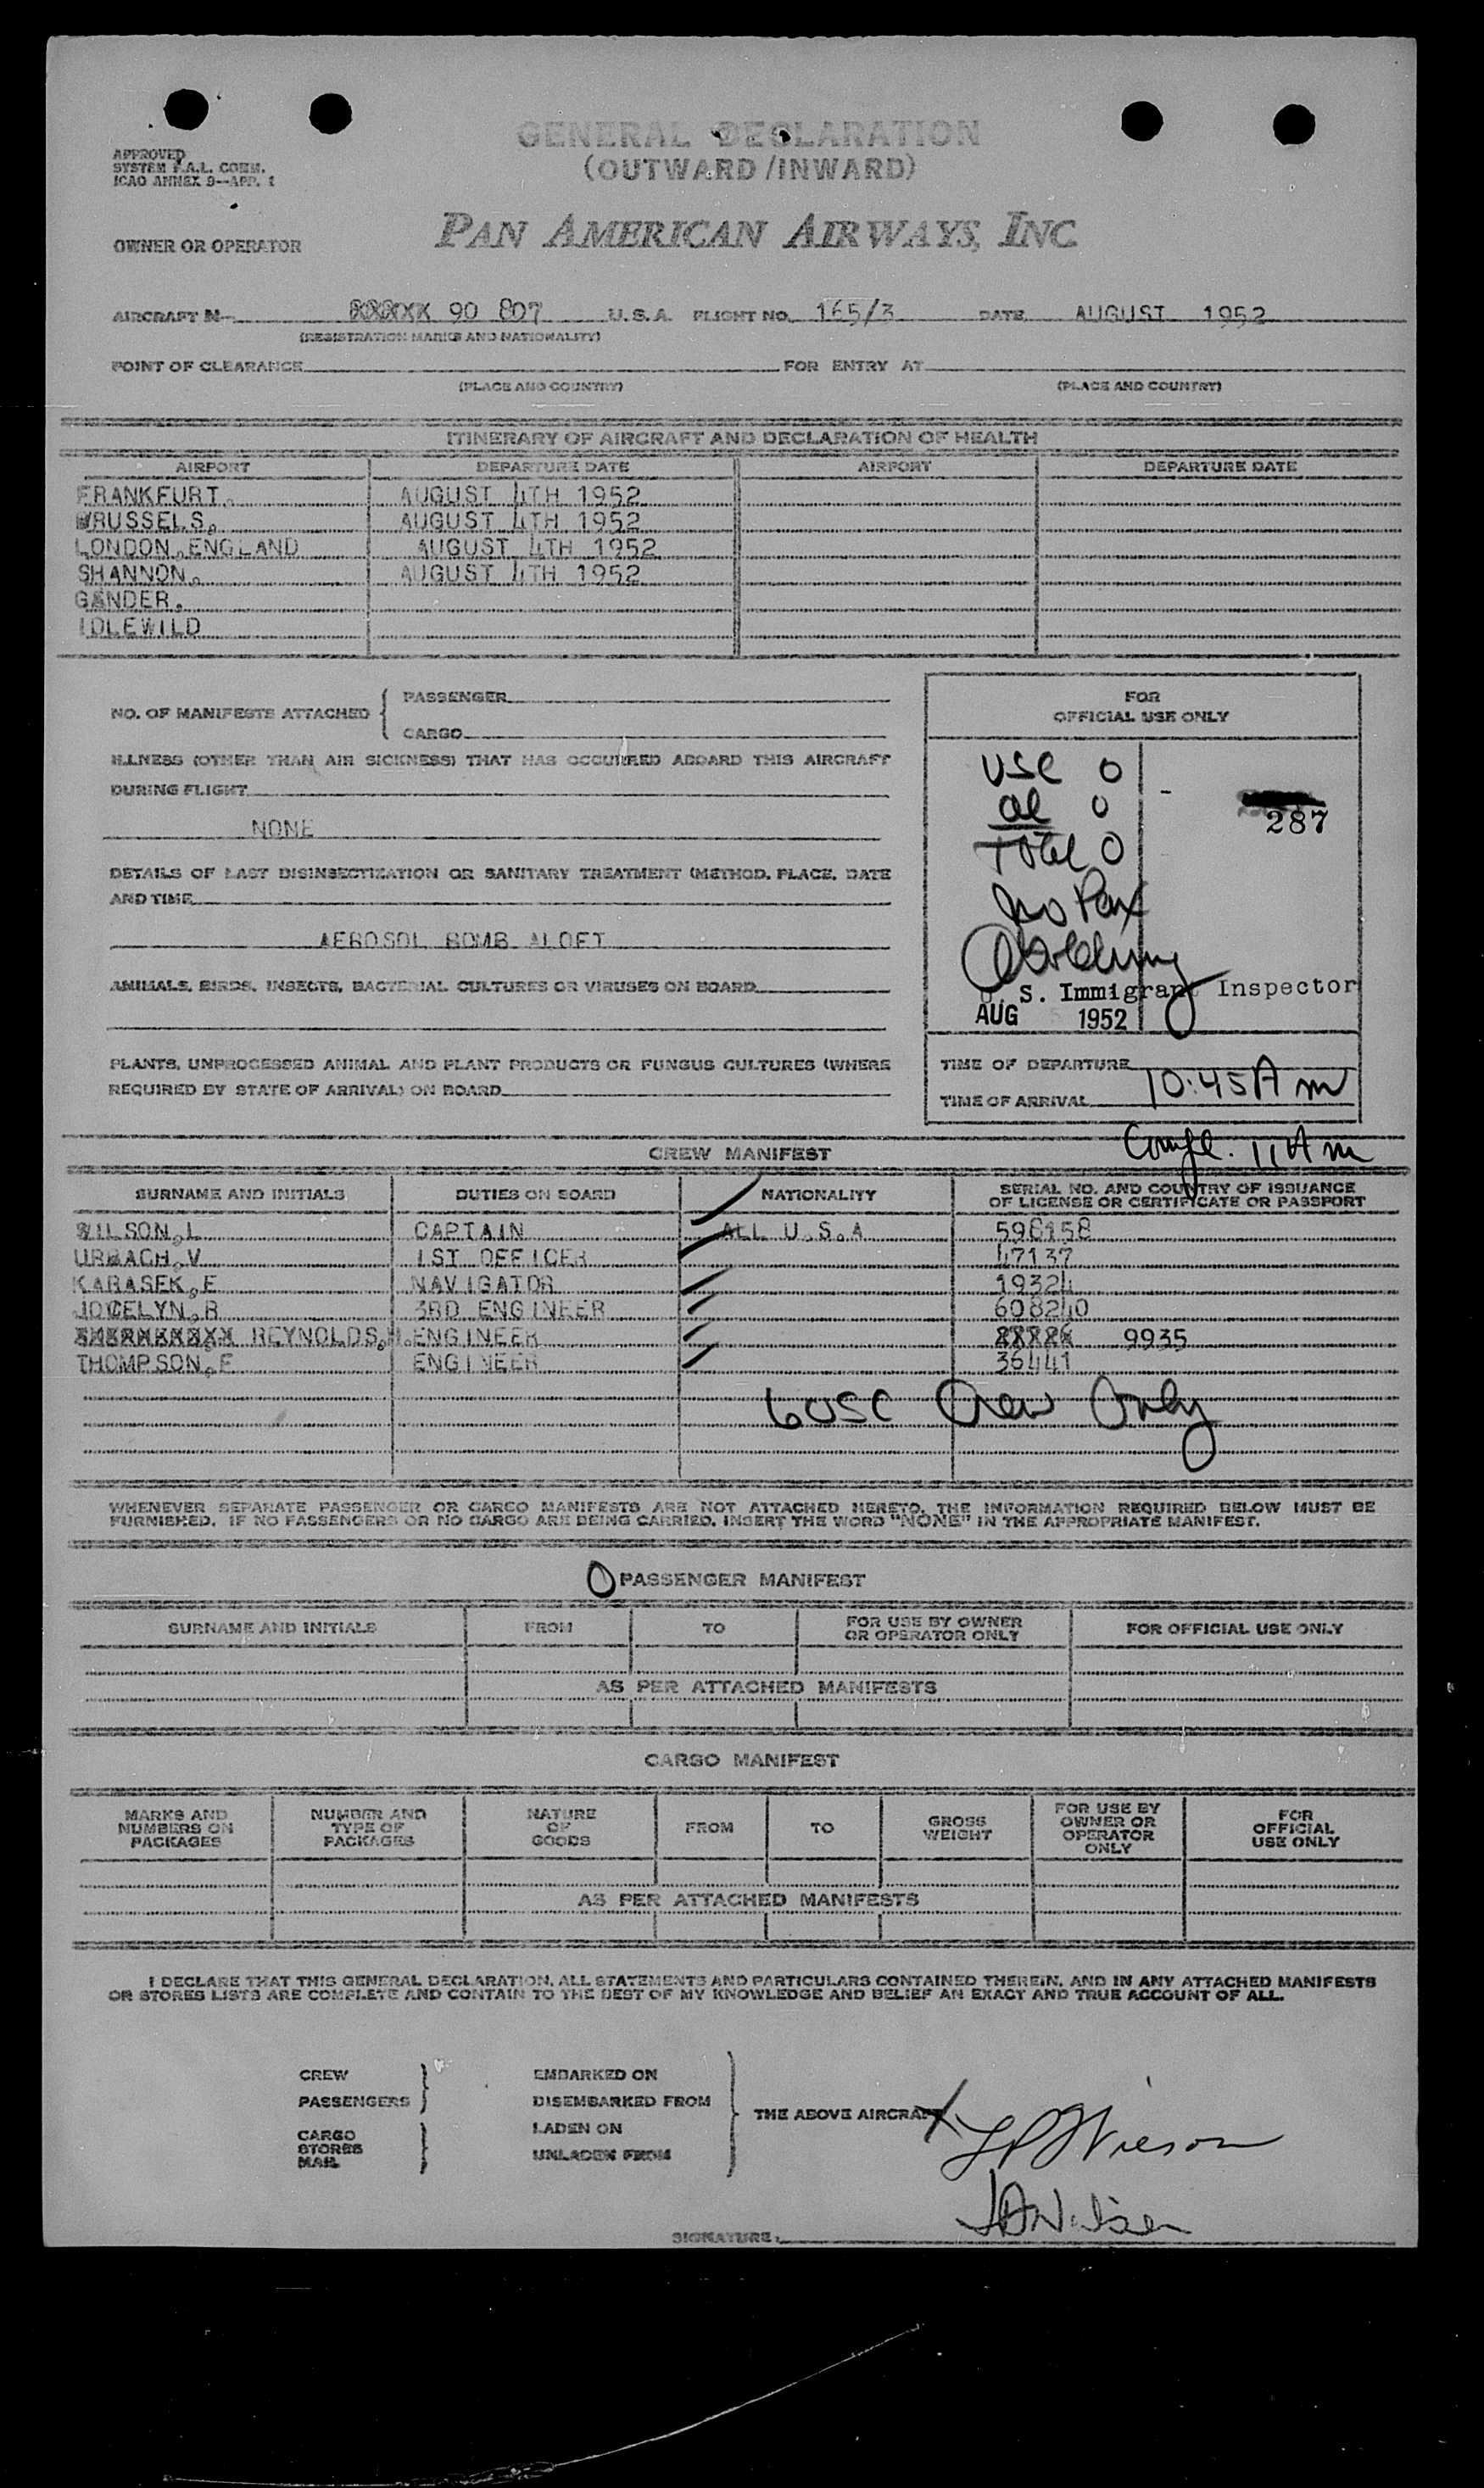 GENERAL DECLARATION
(OUTWARD/INWARD)
APPROVED
SYSTEM F.A.L. COMM.
ICAO ANNEX 9—APP. 1
OWNER OR OPERATOR PAN AMERICAN AIRWAYS, INC.
AIRCRAFT N- 90 807 U.S.A. FLIGHT NO. 165/3 DATE AUGUST 1952
(REGISTRATION MARKS AND NATIONALITY)
POINT OF CLEARANCE FOR ENTRY AT
(PLACE AND COUNTRY) (PLACE AND COUNTRY)
ITINERARY OF AIRCRAFT AND DECLARATION OF HEALTH
AIRPORT DEPARTURE DATE AIRPORT DEPARTURE DATE
FRANKFURT. AUGUST 4TH 1952
BRUSSELS. AUGUST 4TH 1952
LONDON.ENGLAND AUGUST 4TH 1952
SHANNON. AUGUST 4TH 1952
GANDER.
IDLEWILD
NO. OF MANIFESTS ATTACHED { PASSENGER
CARGO
ILLNESS (OTHER THAN AIR SICKNESS) THAT HAS OCCURRED ABOARD THIS AIRCRAFT
DURING FLIGHT
NONE
DETAILS OF LAST DISINSECTIZATION OR SANITARY TREATMENT (METHOD, PLACE, DATE
AND TIME
AEROSOL BOMB ALOFT
ANIMALS, BIRDS, INSECTS, BACTERIAL CULTURES OR VIRUSES ON BOARD
PLANTS, UNPROCESSED ANIMAL AND PLANT PRODUCTS OR FUNGUS CULTURES (WHERE
REQUIRED BY STATE OF ARRIVAL) ON BOARD
FOR
OFFICIAL USE ONLY
USC 0
al 0
287
Total 0
No Pax
U. S. Immigrant Inspector
AUG 1952
TIME OF DEPARTURE
TIME OF ARRIVAL 10:45 A m
Compl. 11 A m
CREW MANIFEST
SURNAME AND INITIALS DUTIES ON BOARD NATIONALITY SERIAL NO. AND COUNTRY OF ISSUANCE
OF LICENSE OR CERTIFICATE OR PASSPORT
WILSON.L CAPTAIN ALL U.S.A 596158
URBACH.V 1ST OFFICER 47137
KARASEK.E NAVIGATOR 19324
JOCELYN.R 3RD ENGINEER 608240
REYNOLDS.H. ENGINEER 9935
THOMPSON.F ENGINEER 36441
6 USC Crew Only
WHENEVER SEPARATE PASSENGER OR CARGO MANIFESTS ARE NOT ATTACHED HERETO, THE INFORMATION REQUIRED BELOW MUST BE
FURNISHED. IF NO PASSENGERS OR NO CARGO ARE BEING CARRIED, INSERT THE WORD "NONE" IN THE APPROPRIATE MANIFEST.
0 PASSENGER MANIFEST
SURNAME AND INITIALS FROM TO FOR USE BY OWNER
OR OPERATOR ONLY FOR OFFICIAL USE ONLY
AS PER ATTACHED MANIFESTS
CARGO MANIFEST
MARKS AND
NUMBERS ON
PACKAGES
NUMBER AND
TYPE OF
PACKAGES
NATURE
OF
GOODS
FROM
TO
GROSS
WEIGHT
FOR USE BY
OWNER OR
OPERATOR
ONLY
FOR
OFFICIAL
USE ONLY
AS PER ATTACHED MANIFESTS
I DECLARE THAT THIS GENERAL DECLARATION, ALL STATEMENTS AND PARTICULARS CONTAINED THEREIN, AND IN ANY ATTACHED MANIFESTS
OR STORES LISTS ARE COMPLETE AND CONTAIN TO THE BEST OF MY KNOWLEDGE AND BELIEF AN EXACT AND TRUE ACCOUNT OF ALL.
CREW EMBARKED ON
PASSENGERS DISEMBARKED FROM
THE ABOVE AIRCRAFT
CARGO LADEN ON
STORES
MAIL UNLADEN FROM
SIGNATURE: